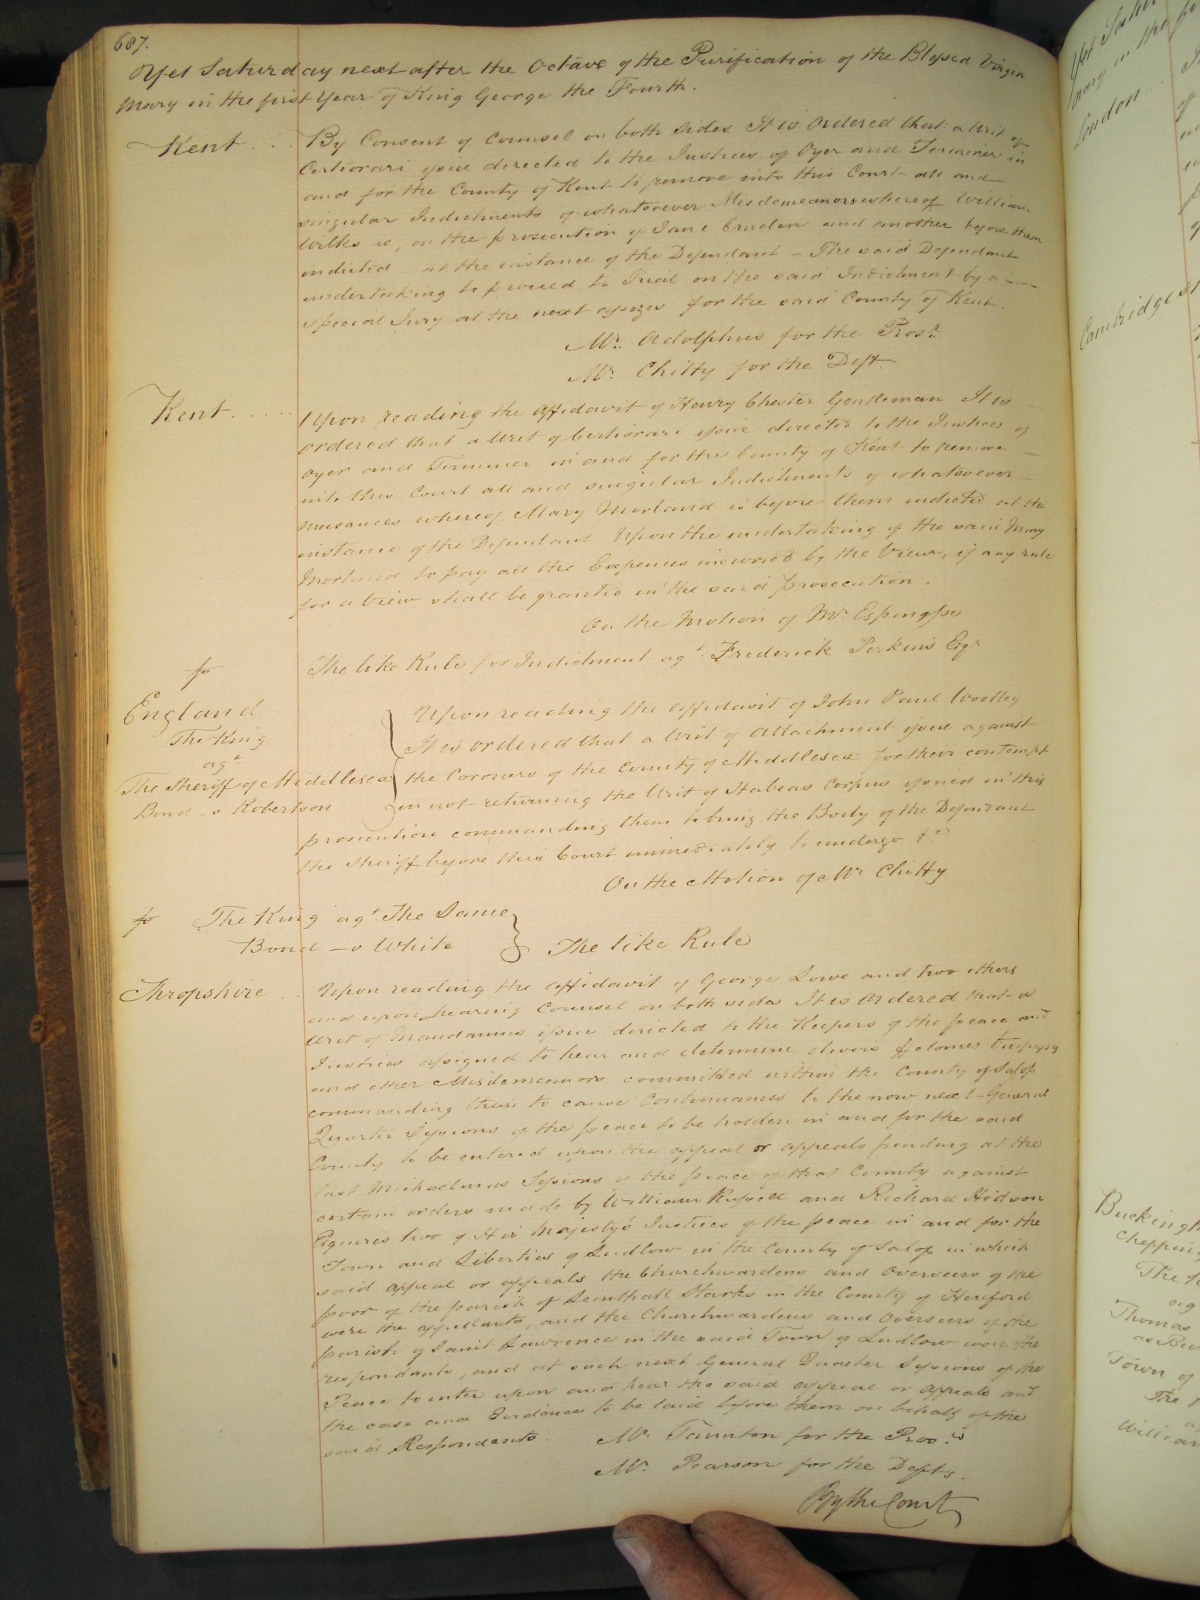 687.
Yet Saturday next after the Octave of the Purification of the Blessed Virgin
Mary in the first Year of King George the Fourth.
Kent
By Consent of Counsel on both sides It is Ordered that a Writ of
Certiorari issue directed to the Justices of Oyer and Terminer in
and for the County of Kent to remove into this Court all and
singular Indictments of whatsoever Misdemeanors whereof William
Wilks is, on the prosecution of Cruden and another before them
indicted at the instance of the Defendant The said Defendant
undertaking to proceed to Trial on the said Indictment by a
special Jury at the next assizes for the said County of Kent.
Mr. Adolphus for the Prosr.
Mr. Chitty for the Deft.
Kent
Upon reading the affidavit of Henry Chester Gentleman It is
ordered that a Writ of Certiorari issue directed to the Justices of
Oyer and Terminer in and for the County of Kent to remove
into this Court all and singular Indictments of whatsoever
nuisances whereof Mary Morland is before them indicted at the
instance of the Defendant Upon the undertaking of the said Mary
Morland to pay all the Expences incurred by the View, if any rule
for a View shall be granted in the said prosecution.
On the Motion of Mr. Espinasse
The like Rule for Indictment agt. Frederick Perkins Esqr
England
The King
agt.
The Sheriff of Middlesex
Bond v Robertson
Upon reading the affidavit of John Paul Woolley
It is ordered that a Writ of Attachment issue against
the Coroners of the County of Middlesex for their contempt
in not returning the Writ of Habeas Corpus issued in this
prosecution commanding them to bring the Body of the Defendant
the Sheriff before this Court immediately to undergo &c
On the Motion of Mr. Chitty
The King agt. The Same
Bond v White
The like Rule
Shropshire
Upon reading the affidavit of George Lowe and two others
and upon hearing Counsel on both sides It is Ordered that a
Writ of Mandamus issue directed to the Keepers of the peace and
Justices assigned to hear and determine divers felonies trespasses
and other Misdemeanors committed within the County of Salop
commanding them to cause Continuances to the now next General
Quarter Sessions of the peace to be holden in and for the said
County to be entered upon the appeal or appeals pending at the
last Michaelmas Sessions of the peace of that County against
certain orders made by William Russell and Richard Hodson
Esquires two of His Majesty's Justices of the peace in and for the
Town and Liberties of Ludlow in the County of Salop in which
said appeal or appeals the Churchwardens and Overseers of the
poor of the parish of Leinthall Starks in the County of Hereford
were the appellants, and the Churchwardens and Overseers of the
parish of Saint Lawrence in the said Town of Ludlow were the
respondents, and at such next General Quarter Sessions of the
Peace to enter upon and hear the said appeal or appeals and
the case and Evidence to be laid before them on behalf of the
said Respondents.
Mr. Taunton for the Pros.
Mr. Pearson for the Defts.
By the Court
Yet Satur
Mary in the fi
London
Cambridgesh
Buckingh
Cheppin
The K
ag
Thomas
Town of
The
William